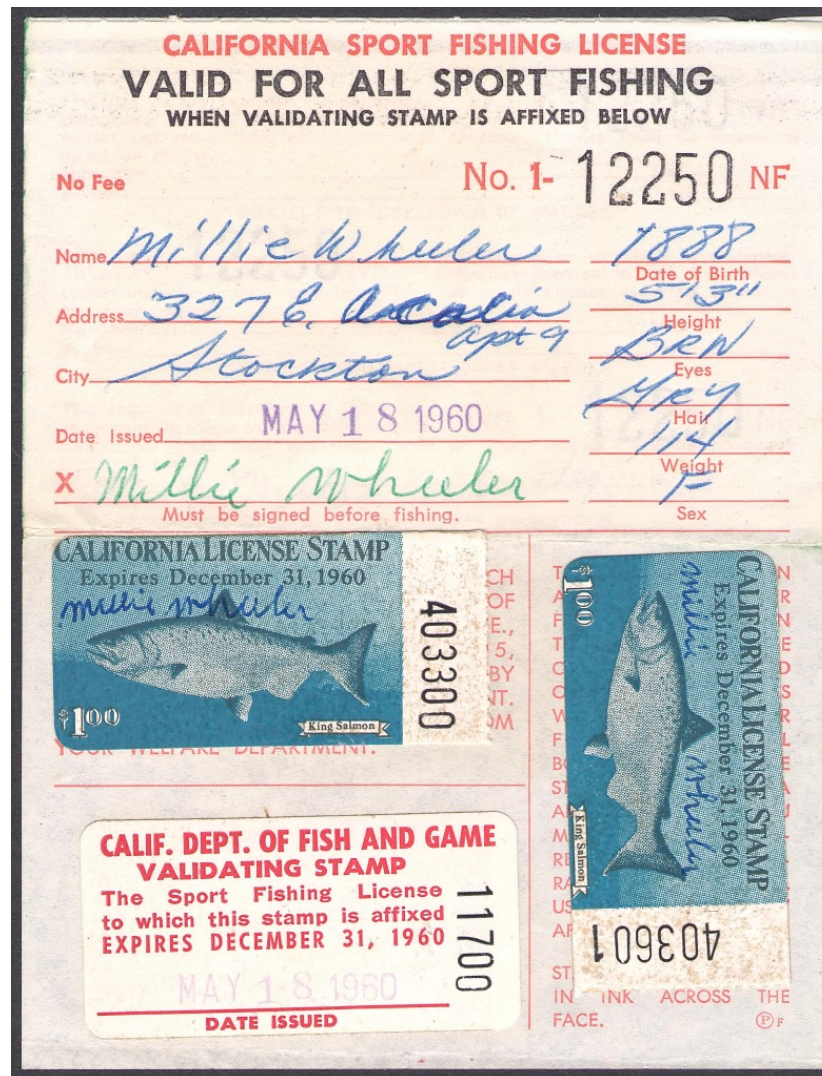 CALIFORNIA SPORT FISHING LICENSE
VALID FOR ALL SPORT FISHING
WHEN VALIDATING STAMP IS AFFIXED BELOW
No Fee No. 1- 12250 NF
Name Millie Wheeler 1888
Date of Birth
Address 327 E. Acacia 5'3"
Apt 9 Height
City Stockton BRN
Eyes
Gry
Hair
Date Issued MAY 18 1960 114
Weight
X Millie Wheeler F
Must be signed before fishing. Sex
CALIFORNIA LICENSE STAMP
Expires December 31, 1960
Millie Wheeler
403300
$1.00
King Salmon
YOUR WELFARE DEPARTMENT.
CALIFORNIA LICENSE STAMP
Expires December 31, 1960
Millie Wheeler
$1.00
King Salmon
403601
CALIF. DEPT. OF FISH AND GAME
VALIDATING STAMP
The Sport Fishing License
to which this stamp is affixed
EXPIRES DECEMBER 31, 1960
11700
MAY 18 1960
DATE ISSUED
IN INK ACROSS THE
FACE. P F